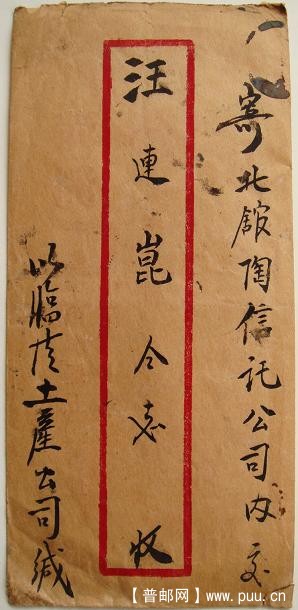 寄北館陶信託公司内交
汪連崑仝志收
以臨清土產公司緘
【普邮网】www.puu.cn